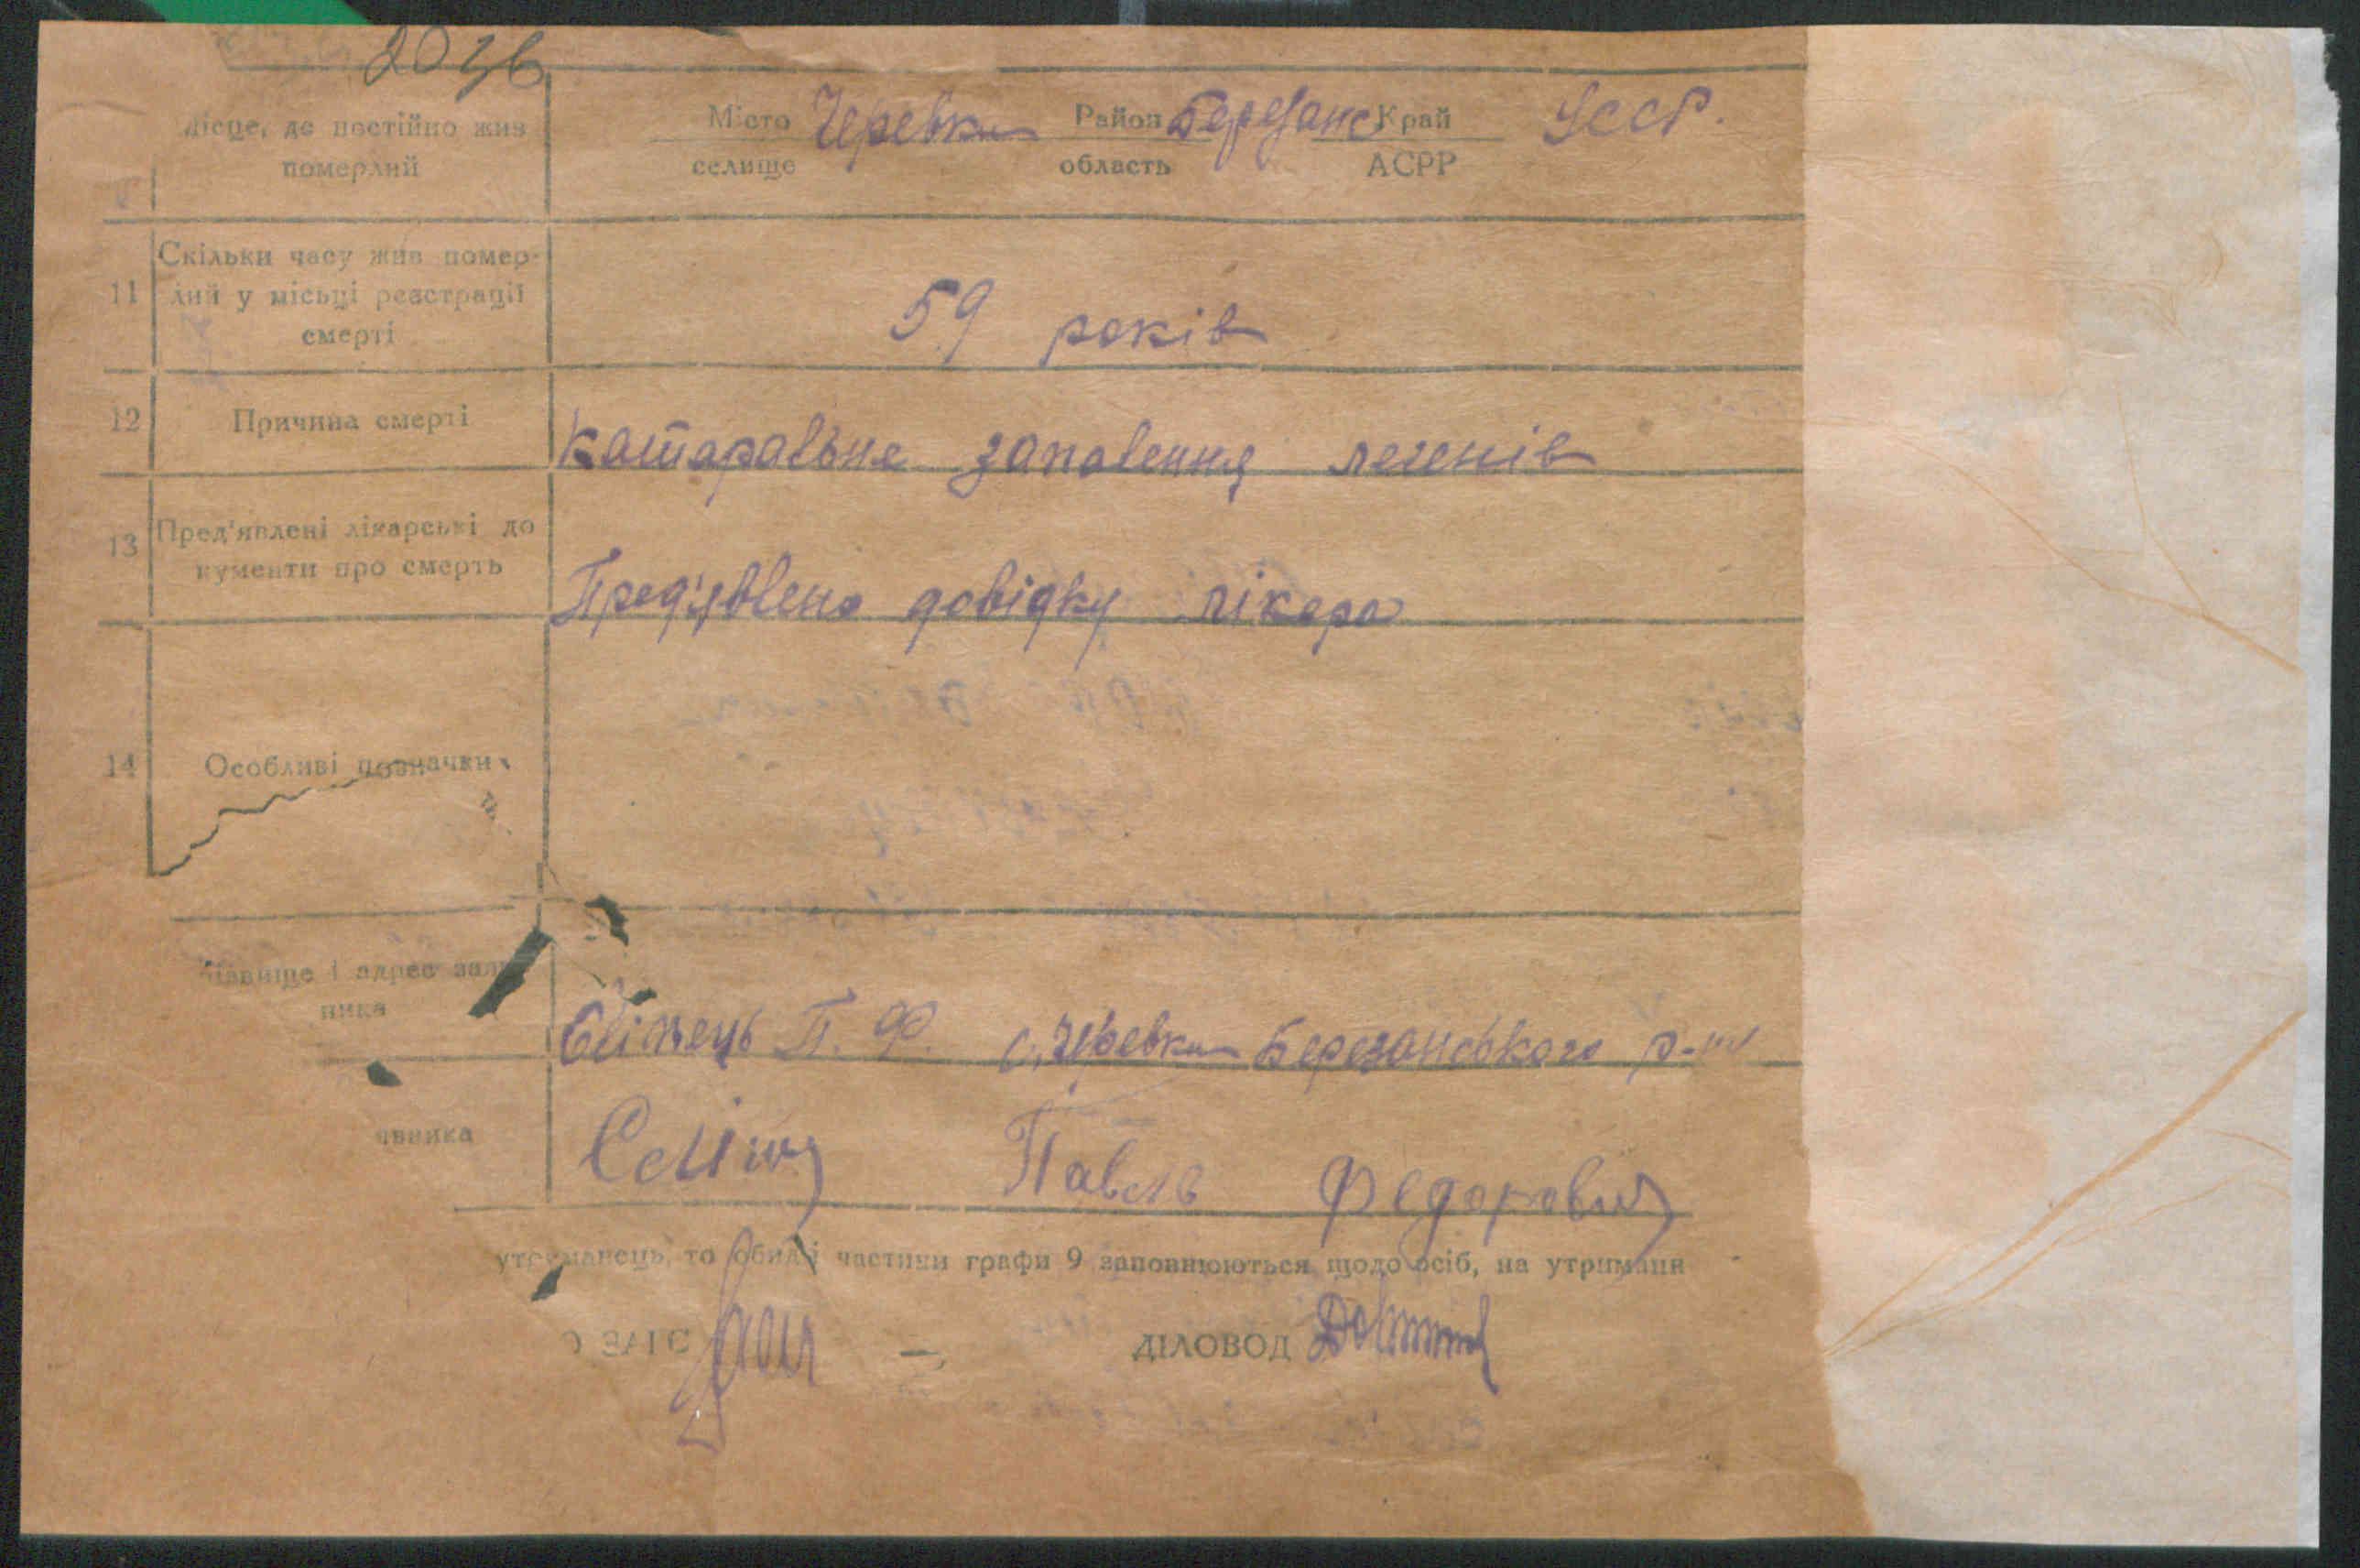 203б
Місце, де постійно жив
померлий
Місто Черевки Район Березанс Край УССР.
селище область АСРР
11 Скільки часу жив помер-
лий у місьці реєстрації
смерті
59 років
12 Причина смерті
Катаральне запалення легенів
13 Пред'явлені лікарські до
кументи про смерть
Пред'явлено довідку лікара
14 Особливі позначки
різвище і адрес зая
ника
П. Ф. с. Черевки Березанського р-ну
авника
Павель Федорович
утриманець, то обидві частини графи 9 заповнюються щодо осіб, на утриманн
ЗАГС
ДІЛОВОД